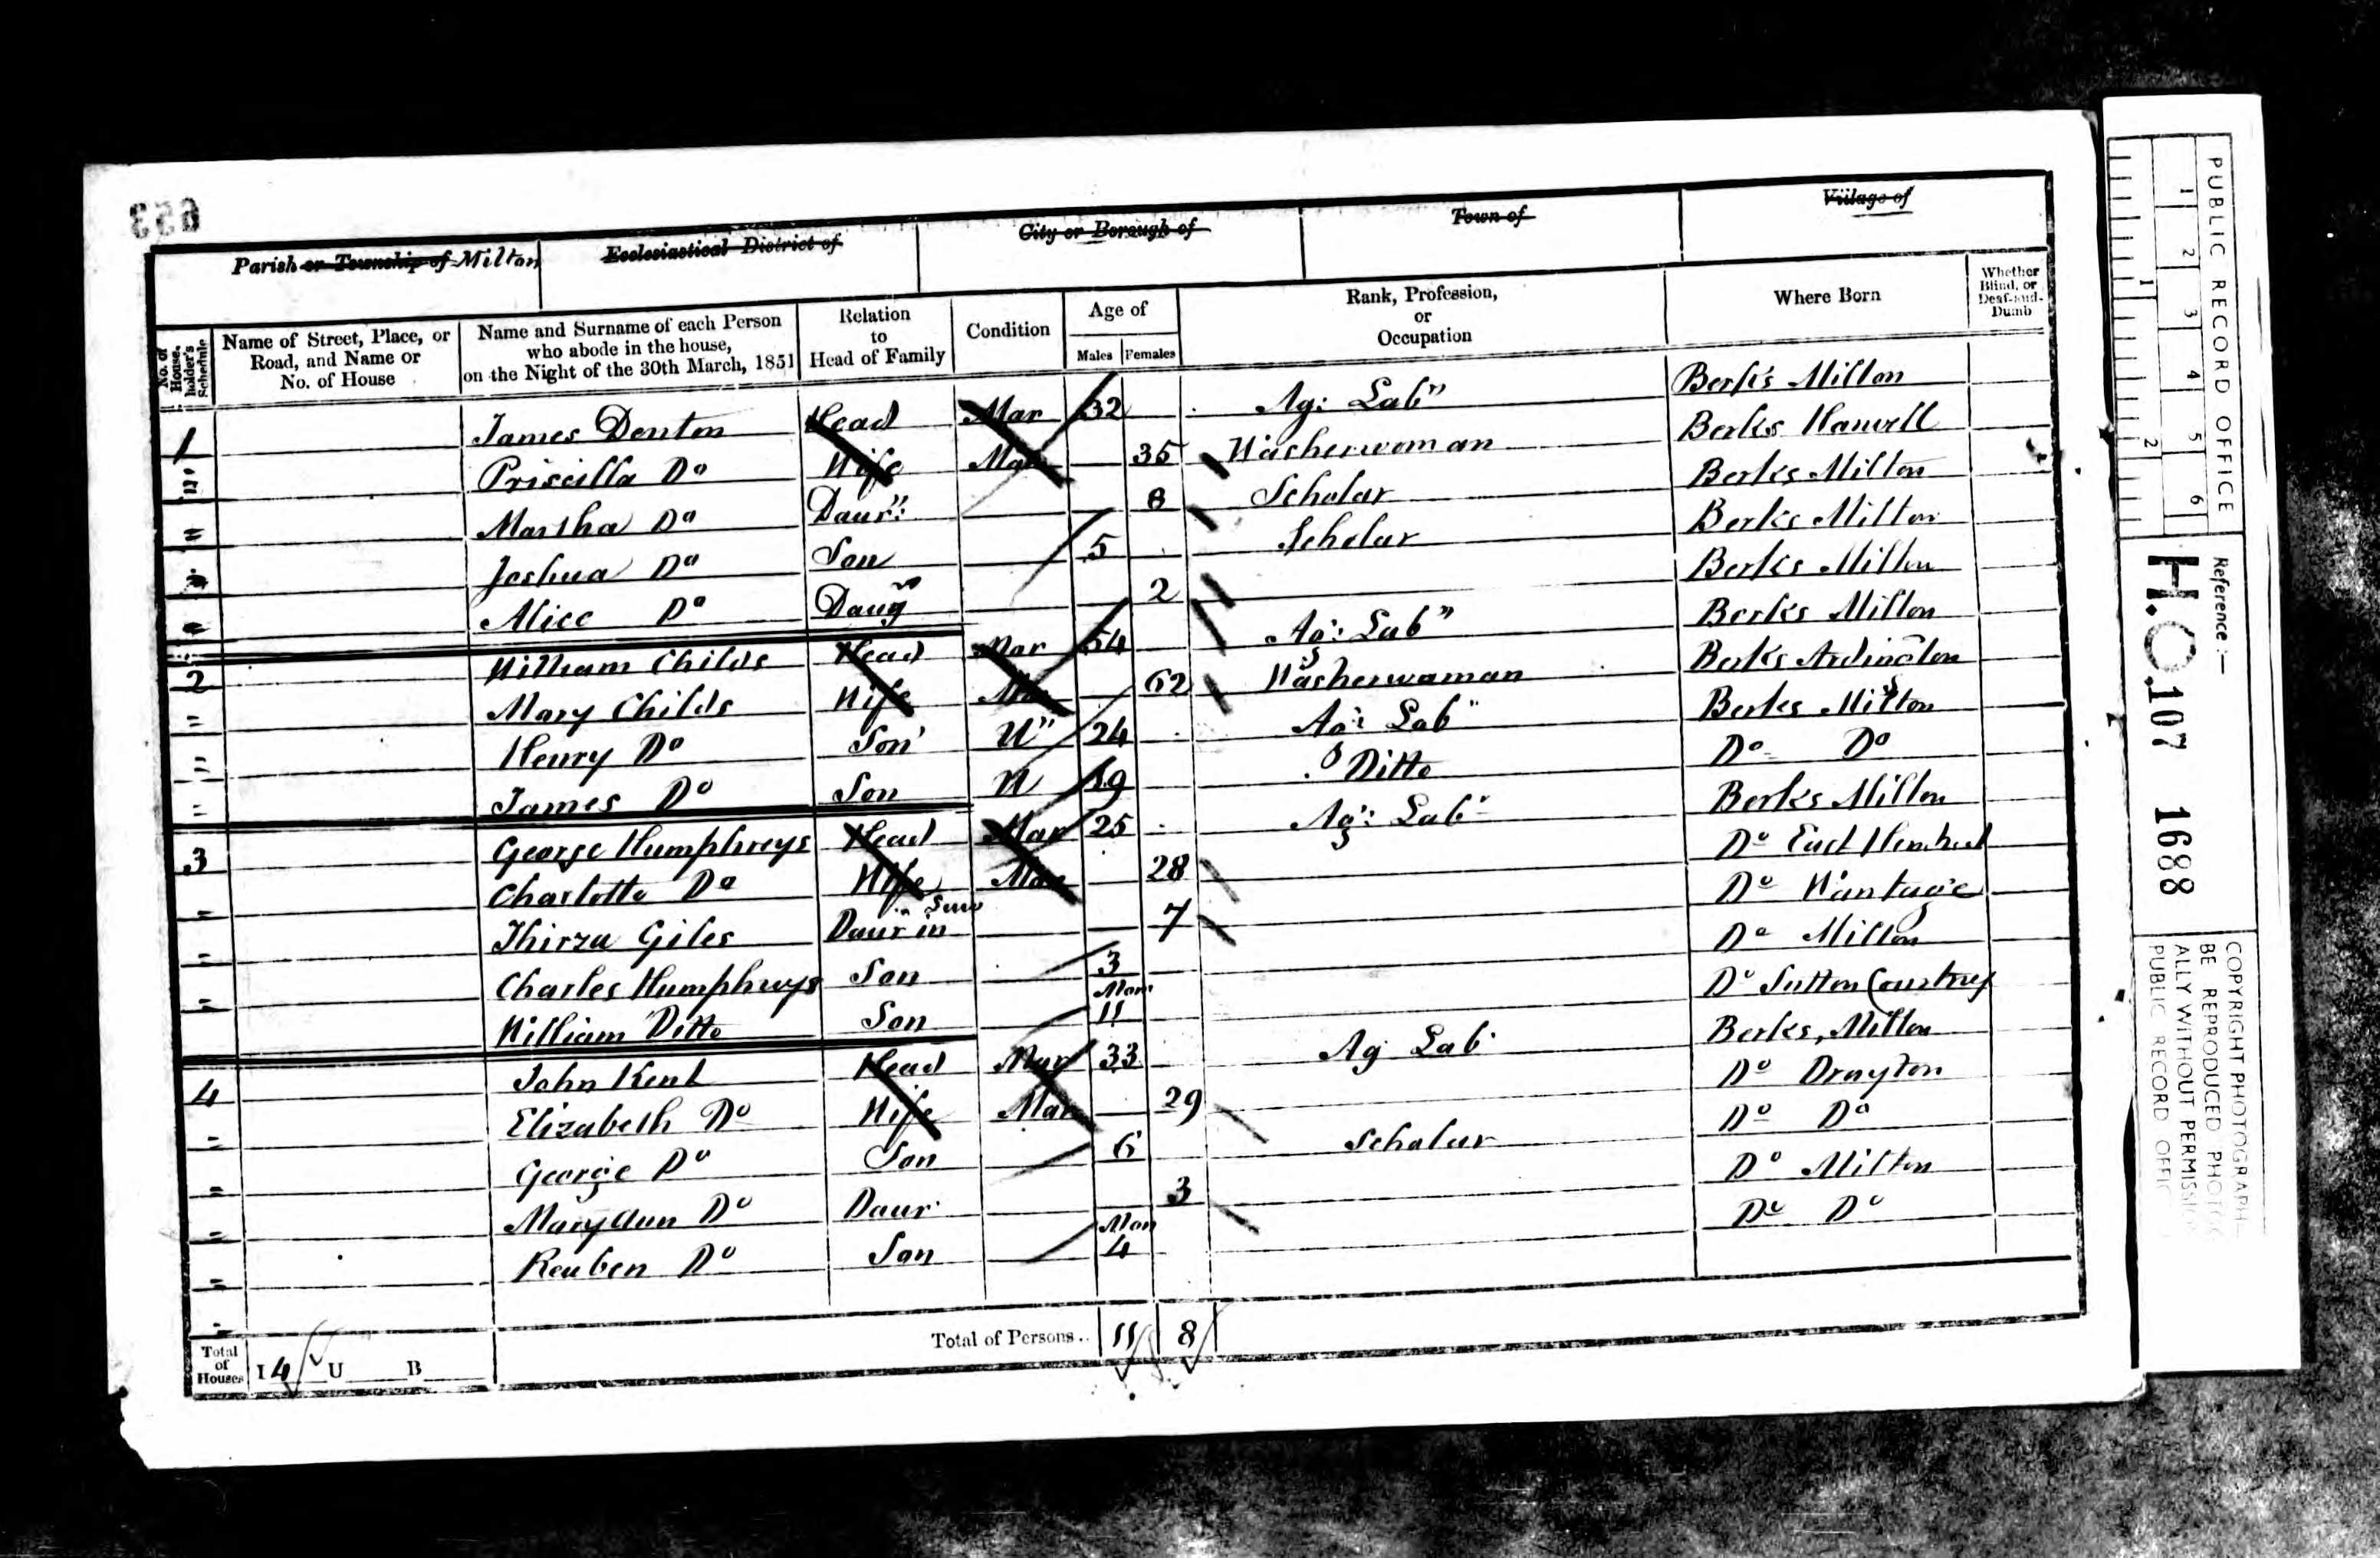 653
Parish or Township of Milton Ecclesiastical District of City or Borough of Town of Village of
No. of House-holder's Schedule Name of Street, Place, or Road, and Name or No. of House Name and Surname of each Person who abode in the house, on the Night of the 30th March, 1851 Relation to Head of Family Condition Age of Males Females Rank, Profession, or Occupation Where Born Whether Blind, or Deaf-and-Dumb
1 James Denton Head Mar 32 Ag: Lab" Berks Milton
" Priscilla Do Wife Mar 35 Washerwoman Berks
" Martha Do Daur: 8 Scholar Berks Milton
" Joshua Do Son 5 Scholar Berks Milton
" Alice Do Daugr 2 Berks Milton
2 William Childs Head Mar 54 Ag: Lab" Berks Milton
" Mary Childs Wife Mar 62 Washerwoman Berks Ardington
" Henry Do Son U" 24 Ag: Lab" Berks Milton
" James Do Son U 19 Ditto Do Do
3 George Humphreys Head Mar 25 Ag: Lab" Berks Milton
" Charlotte Do Wife Mar 28 Do East
" Thirza Giles Daur in 7 Do Wantage
" Charles Humphreys Son 3 Do Milton
" William Ditto Son Mon 11 Do Sutton Courtney
4 John Kent Head Mar 33 Ag Lab Berks, Milton
" Elizabeth Do Wife Mar 29 Do Drayton
" George Do Son 6 Scholar Do Do
" Mary Ann Do Daur 3 Do Milton
" Reuben Do Son Mon 4 Do Do
Total of Houses I 4 U B Total of Persons.. 11 8
PUBLIC RECORD OFFICE
1 2 3 4 5 6
1 2
Reference:—
H.O. 107 1688
COPYRIGHT PHOTOGRAPH
BE REPRODUCED PHOTOG
ALLY WITHOUT PERMISSION
PUBLIC RECORD OFFIC